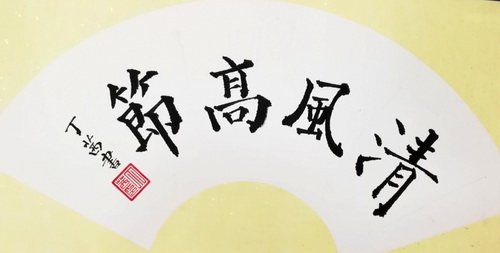 清風高節
丁茜書